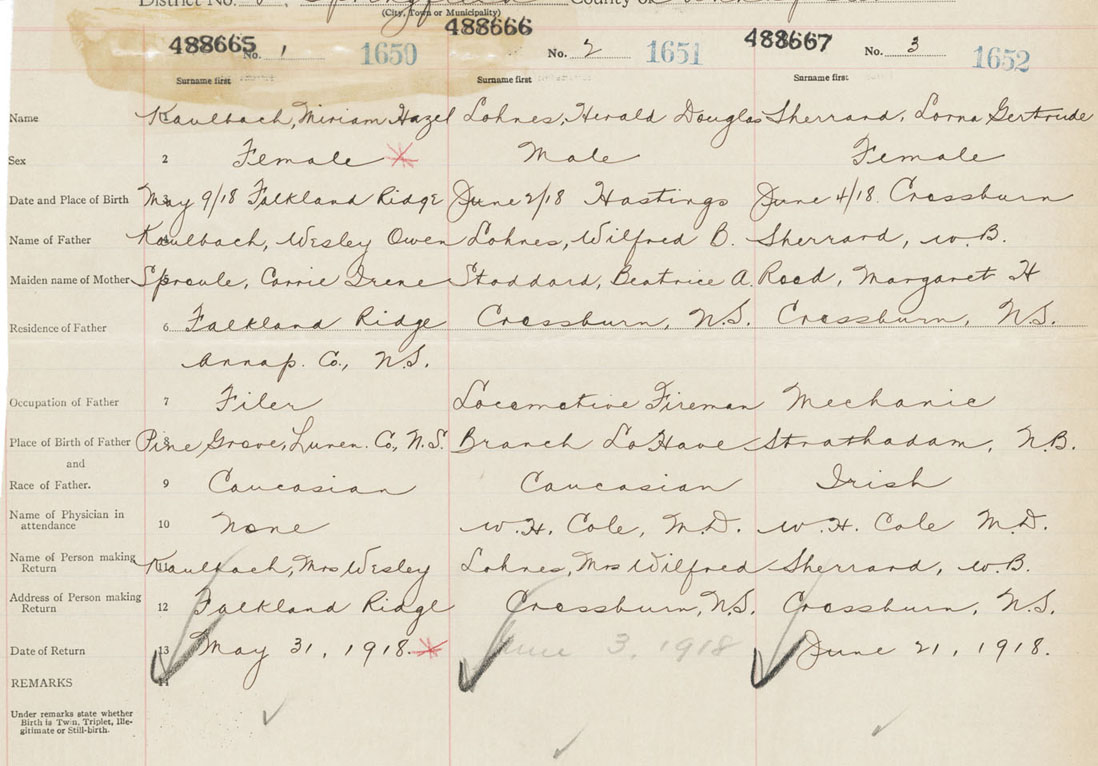 District No. Springfield County of
(City, Town or Municipality)
488665 No. 1 1650 488666 No. 2 1651 488667 No. 3 1652
Surname first Surname first Surname first
Name Kaulbach, Miriam Hazel Lohnes, Herald Douglas Sherrard, Lorna Gertrude
Sex 2 Female Male Female
Date and Place of Birth May 9/18 Falkland Ridge June 2/18 Hastings June 4/18. Crossburn
Name of Father Kaulbach, Wesley Owen Lohnes, Wilfred B. Sherrard, W. B.
Maiden name of Mother Sproule, Carrie Irene Stoddard, Beatrice A. Rood, Margaret H
Residence of Father 6 Falkland Ridge Crossburn, N.S. Crossburn, N.S.
Annap. Co., N.S.
Occupation of Father 7 Filer Locomotive Fireman Mechanic
Place of Birth of Father 8 Pine Grove, Lunen. Co, N.S. Branch LaHave Strathadam, N.B.
and
Race of Father. 9 Caucasian Caucasian Irish
Name of Physician in
attendance 10 None W. H. Cole, M.D. W. H. Cole M.D.
Name of Person making
Return Kaulbach, Mrs Wesley Lohnes, Mrs Wilfred Sherrard, W. B.
Address of Person making
Return 12 Falkland Ridge Crossburn, N.S. Crossburn, N.S.
Date of Return 13 May 31, 1918. June 3, 1918 June 21, 1918.
REMARKS
Under remarks state whether
Birth is Twin, Triplet, Ille-
gitimate or Still-birth.